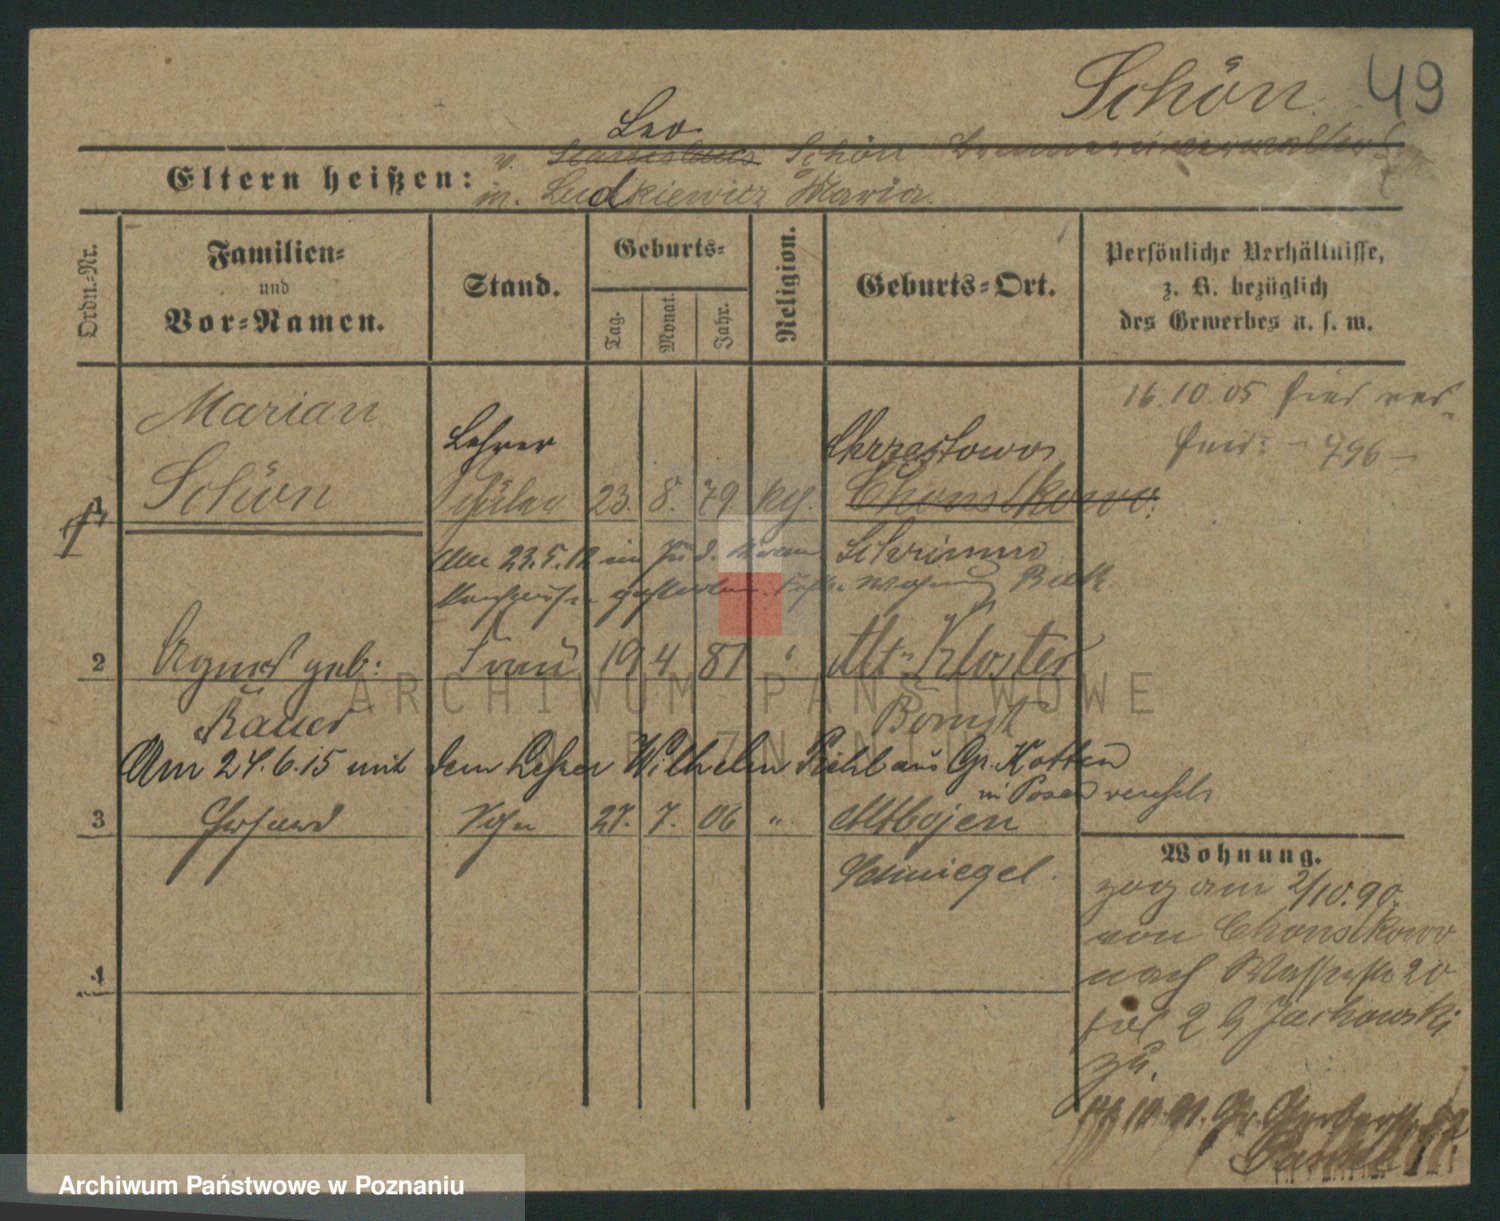 Schön 49
Leo
Eltern heißen: v. Stanislaus Schön Brennereiverwalter
m. Ludkiewicz Maria.
Ordn.-Nr.
Familien-
und
Vor-Namen.
Stand.
Geburts-
Tag. Monat. Jahr.
Religion.
Geburts-Ort.
Persönliche Verhältnisse,
z. B. bezüglich
des Gewerbes u. s. w.
16.10.05
796
Marian
Schön
Lehrer
Schüler 23. 8. 79. kth.
Chrzestowo
Chonstkowo
Schrimm
Am 23.5.12 im
gestorben. Wohnung Buk
2 Agnes geb: Frau 19 4 81 " Alt-Kloster
Bauer Bomst
Am 24.6.15 mit dem Lehrer Wilhelm Piehl aus Gr. Kotten
in Posen verehel.
3 Gerhard Sohn 27. 7. 06 " Altbojen
Schmiegel.
4
Wohnung.
zog am 2/10.90.
von Chonstkowo
nach 20
bei Jachowski
zu.
ARCHIWUM PAŃSTWOWE
W POZNANIU
Archiwum Państwowe w Poznaniu